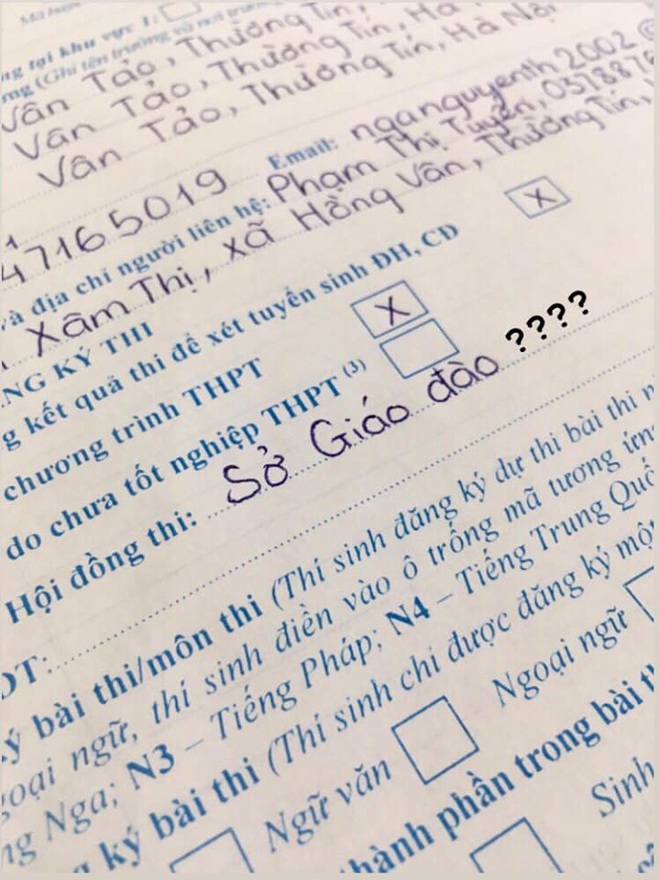 ng tại khu vực 1:
Vân Tảo, Thường Tín,
Vân Tảo, Thường Tín, Hà
Vân Tảo, Thường Tín, Hà Nội
47165019 Email: nganguyenth2002@
và địa chỉ người liên hệ: Phạm Thị Tuyển, 0378876
Xâm Thị, xã Hồng Vân, Thường Tín,
NG KÝ THI
g kết quả thi để xét tuyển sinh ĐH, CĐ X
chương trình THPT X
do chưa tốt nghiệp THPT (3)
Hội đồng thi: Sở Giáo đào ????
ĐT:
ý bài thi/môn thi (Thí sinh đăng ký dự thi bài thi n
goại ngữ, thí sinh điền vào ô trống mã tương ứn
ng Nga; N3 – Tiếng Pháp; N4 – Tiếng Trung Quố
ký bài thi (Thí sinh chỉ được đăng ký mộ
Ngữ văn Ngoại ngữ
hành phần trong bài t
Sinh